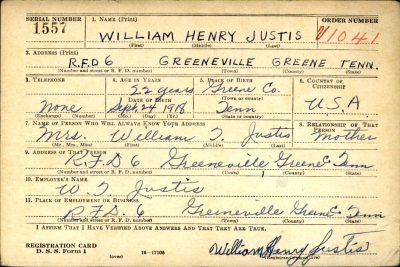 SERIAL NUMBER 1. NAME (Print) ORDER NUMBER
1557 WILLIAM HENRY JUSTIS V1041
(First) (Middle) (Last)
2. ADDRESS (Print)
R.F.D 6 GREENEVILLE GREENE TENN.
(Number and street or R. F. D. number) (Town) (County) (State)
3. TELEPHONE 4. AGE IN YEARS 5. PLACE OF BIRTH 6. COUNTRY OF CITIZENSHIP
22 years Greene Co.
DATE OF BIRTH (Town or county)
None Sept 24 1918 Tenn U.S.A
(Exchange) (Number) (Mo.) (Day) (Yr.) (State or country)
7. NAME OF PERSON WHO WILL ALWAYS KNOW YOUR ADDRESS 8. RELATIONSHIP OF THAT PERSON
Mrs. William T. Justis Mother
(Mr., Mrs., Miss) (First) (Middle) (Last)
9. ADDRESS OF THAT PERSON
R.F.D 6 Greeneville Greene Tenn
(Number and street or R. F. D. number) (Town) (County) (State)
10. EMPLOYER'S NAME
W. T. Justis
11. PLACE OF EMPLOYMENT OR BUSINESS
R.F.D. 6 Greeneville Tenn
(Number and street or R. F. D. number) (Town) (County) (State)
I AFFIRM THAT I HAVE VERIFIED ABOVE ANSWERS AND THAT THEY ARE TRUE.
REGISTRATION CARD
D. S. S. Form 1 (over) 16—17105 William Henry Justis